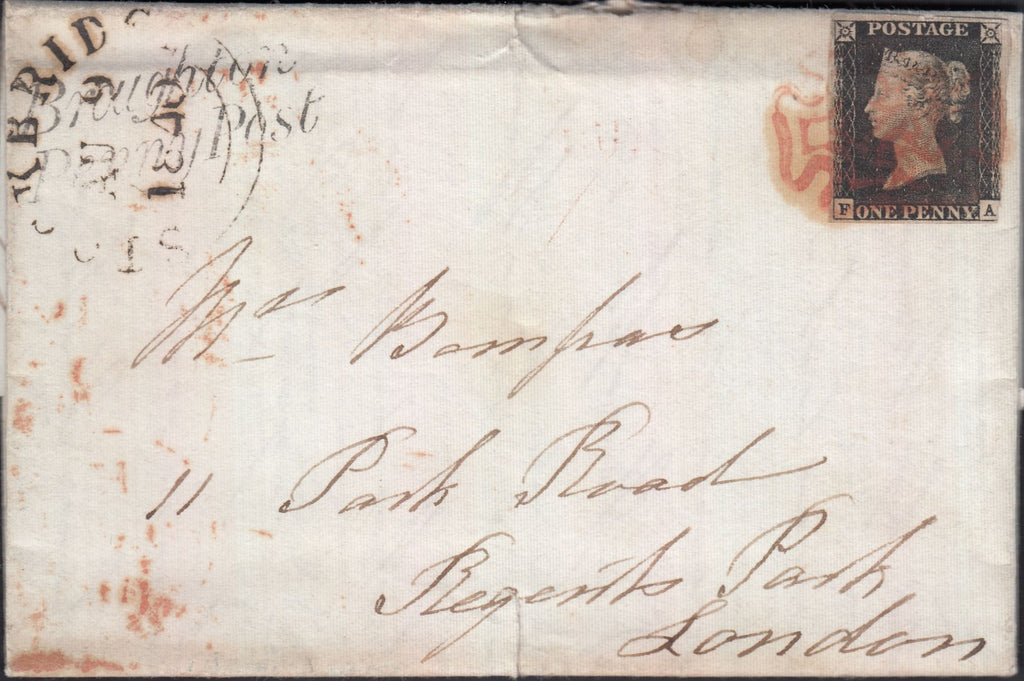 Broughton
Penny Post
POSTAGE
F ONE PENNY A
Mrs Bompas
11 Park Road
Regents Park
London